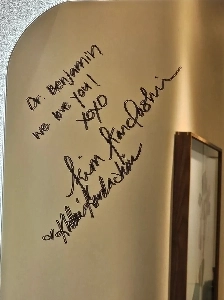 Dr. Benjamin
we love you!
XOXO
Kim Kardashian